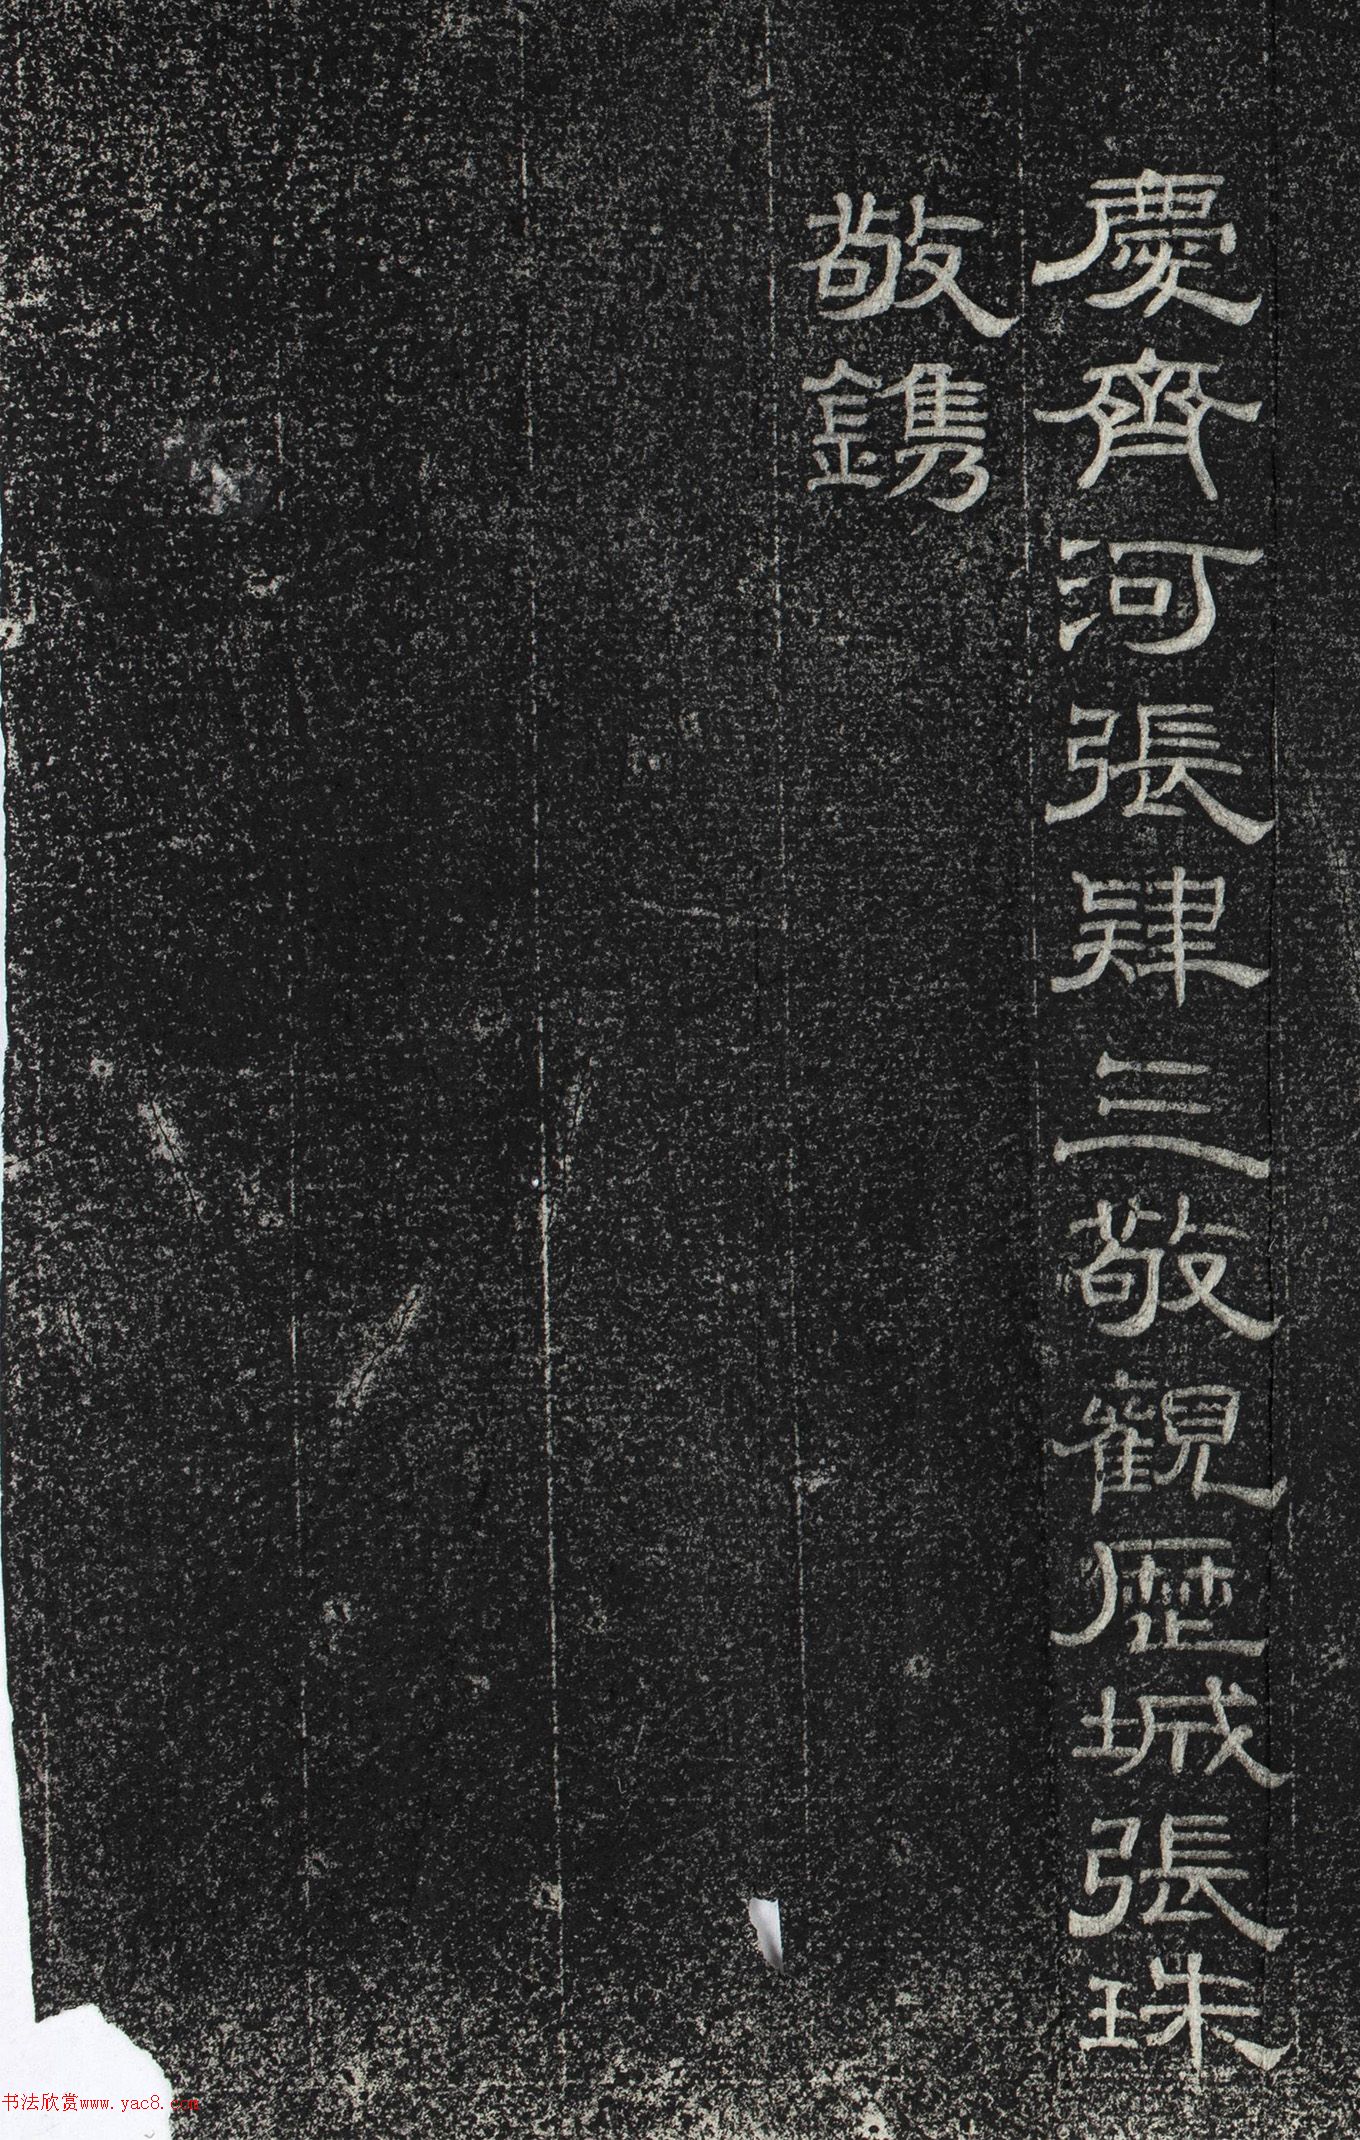 慶齊河張肄三敬觀歷城張珠
敬鐫
书法欣赏www.yac8.com